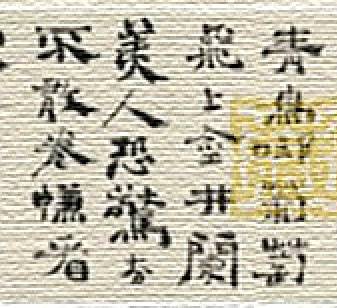 青鳥啣葡萄
飛上金井闌
美人恐驚去
不敢卷㡘看